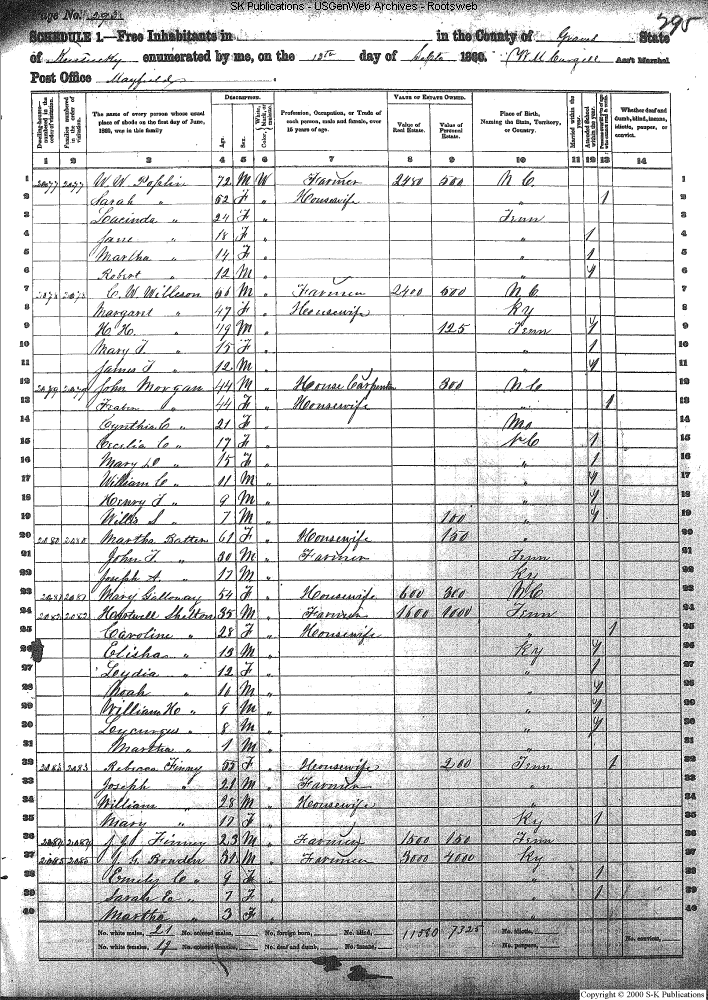 SK Publications - USGenWeb Archives - Rootsweb
Page No. 293
295
SCHEDULE 1.—Free Inhabitants in in the County of Graves State
of Kentucky enumerated by me, on the 12th day of Septr 1860. Ass't Marshal
Post Office Mayfield
Dwelling-houses—numbered in the order of visitation.
Families numbered in the order of visitation.
The name of every person whose usual place of abode on the first day of June, 1860, was in this family
DESCRIPTION.
Age. Sex. Color,
Profession, Occupation, or Trade of each person, male and female, over 15 years of age.
VALUE OF ESTATE OWNED.
Value of Real Estate. Value of Personal Estate.
Place of Birth, Naming the State, Territory, or Country.
Married within the year.
Attended School within the year.
Whether deaf and dumb, blind, insane, idiotic, pauper, or convict.
1 2 3 4 5 6 7 8 9 10 11 12 13 14
1 2077 2077 W. W. Poplin 72 M W Farmer 2480 500 N C. 1
2 Sarah " 52 F " Housewife " 1 2
3 Lucinda " 24 F " Tenn 3
4 Jane " 18 F " " 1 4
5 Martha " 14 F " " 1 5
6 Robert " 12 M " " 1 6
7 2078 2078 C. W. Willeson M " Farmer 2400 500 N C. 7
8 Margaret " 47 F " Housewife Ky 8
9 H. H. " 19 M " 125 Tenn 1 9
10 Mary J. " 15 F " " 1 10
11 James T " 12 M " " 1 11
12 2079 2079 John Morgan 44 M " House Carpenter 300 N C 12
13 " 44 F " Housewife " 1 13
14 Cynthia C " 21 F " Mo 14
15 Cecilia C " 17 F " N C 1 15
16 Mary D " 15 F " " 1 16
17 William C " 11 M " " 1 17
18 Henry T " 9 M " " 1 18
19 Willis S " 7 M " 100 " 1 19
20 2080 2080 Martha Batten 61 F " Housewife 150 " 20
21 John T. " 30 M " Farmer Tenn 21
22 Joseph A. " 17 M " Ky 22
23 2081 2081 Mary Galloway 54 F " Housewife 600 300 N C 23
24 2082 2082 Hartwell Shelton 35 M " Farmer 1600 1000 Tenn 24
25 Caroline " 28 F " Housewife " 1 25
26 Elisha " 13 M " Ky 1 26
27 Lydia " 12 F " " 1 27
28 Noah " 10 M " " 1 28
29 William H " 9 M " " 1 29
30 Lycurgus " 8 M " " 1 30
31 Martha " 1 M " " 31
32 2083 2083 Rebecca Finney 55 F " Housewife 200 Tenn 1 32
33 Joseph " 21 M " Farmer " 33
34 William " 28 M " Housewife " 34
35 Mary " 17 F " Ky 1 35
36 2084 2084 Finney 23 M " Farmer 1500 150 Tenn 36
37 2085 2085 Bowden 31 M " Farmer 3000 4000 Ky 37
38 Emily C " 9 F " " 1 38
39 Sarah E " 7 F " " 1 39
40 Martha " 3 F " " 40
No. white males, 21 No. colored males, No. foreign born, No. blind, 11580 7325 No. idiotic,
No. white females, 19 No. colored females, No. deaf and dumb, No. insane, No. paupers, No. convicts,
Copyright © 2000 S-K Publications